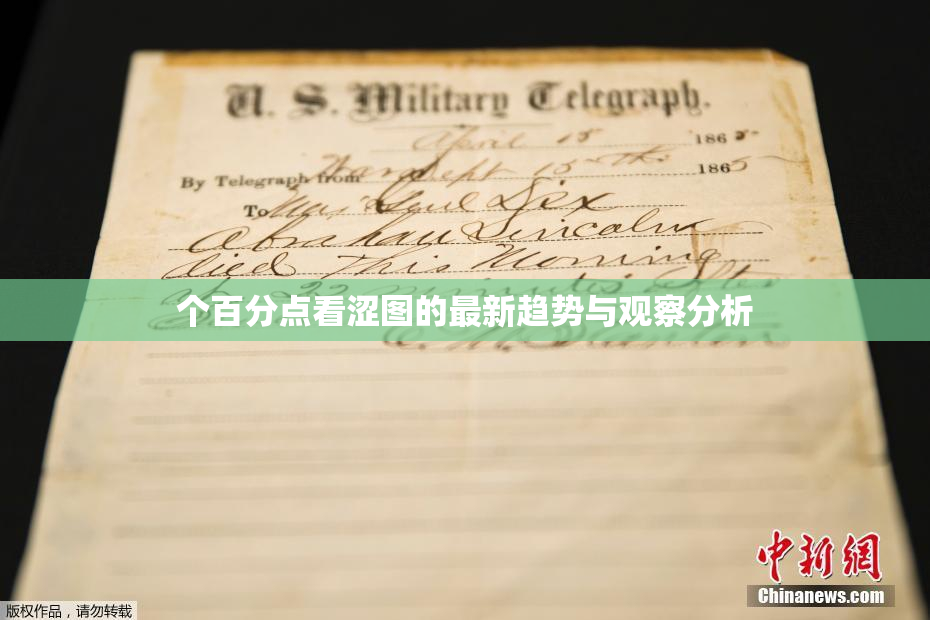 U. S. Military Telegraph.
April 15 1865
By Telegraph from War Dept 15th 1865
To Maj Genl Dix
Abraham Lincoln
died This Morning
at 22 minutes after
个百分点看涩图的最新趋势与观察分析
中新网
Chinanews.com
版权作品，请勿转载